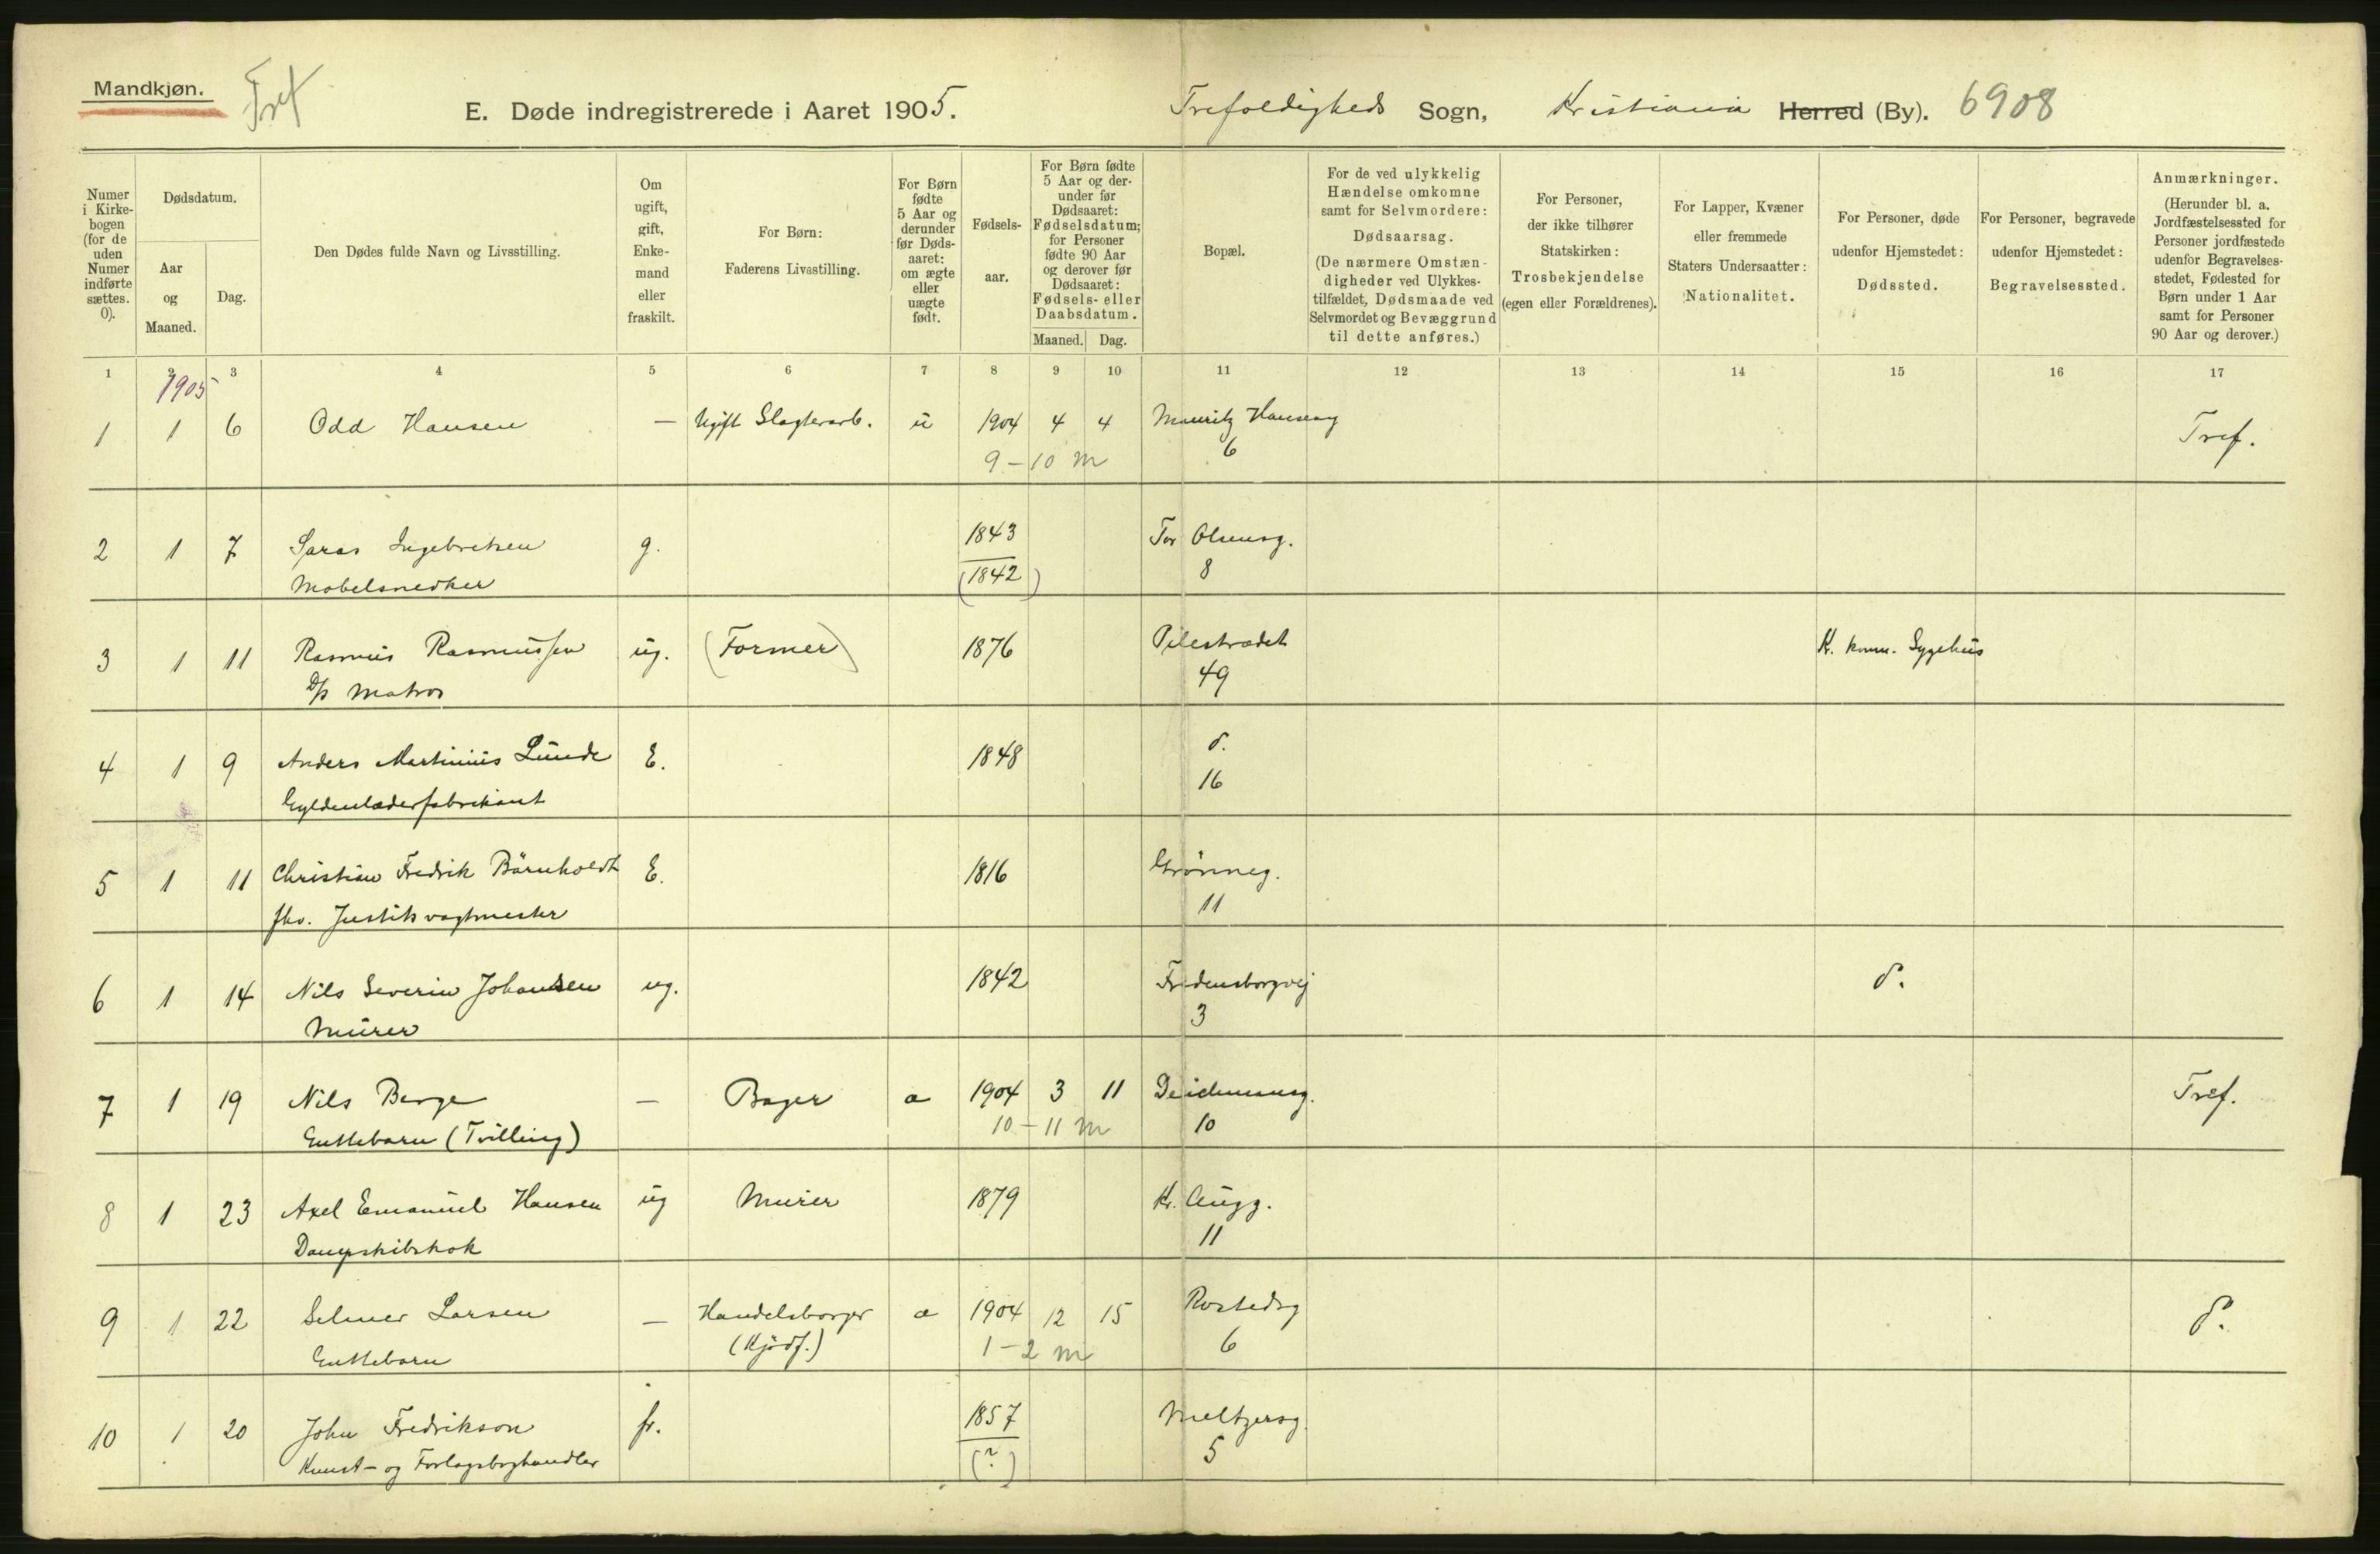 Mandkjøn.
Tref
E. Døde indregistrerede i Aaret 1905.
Trefoldigheds Sogn, Kristiania Herred (By). 6908
Numer i Kirke-bogen (for de uden Numer indførte sættes. 0).
Dødsdatum.
Aar og Maaned.
Dag.
Den Dødes fulde Navn og Livsstilling.
Om ugift, gift, Enke-mand eller fraskilt.
For Børn: Faderens Livsstilling.
For Børn fødte 5 Aar og derunder før Døds-aaret: om ægte eller uægte født.
Fødsels-aar.
For Børn fødte 5 Aar og der-under før Dødsaaret: Fødselsdatum; for Personer fødte 90 Aar og derover før Dødsaaret: Fødsels- eller Daabsdatum.
Maaned. Dag.
Bopæl.
For de ved ulykkelig Hændelse omkomne samt for Selvmordere: Dødsaarsag. (De nærmere Omstæn-digheder ved Ulykkes-tilfældet, Dødsmaade ved Selvmordet og Bevæggrund til dette anføres.)
For Personer, der ikke tilhører Statskirken: Trosbekjendelse (egen eller Forældrenes).
For Lapper, Kvæner eller fremmede Staters Undersaatter: Nationalitet.
For Personer, døde udenfor Hjemstedet: Dødssted.
For Personer, begravede udenfor Hjemstedet: Begravelsessted.
Anmærkninger. (Herunder bl. a. Jordfæstelsessted for Personer jordfæstede udenfor Begravelses-stedet, Fødested for Børn under 1 Aar samt for Personer 90 Aar og derover.)
1 2 3 4 5 6 7 8 9 10 11 12 13 14 15 16 17
1905
1 1 6 Odd Hansen — Ugift Slagterarb. u 1904 4 4 Mauritz Hanseng Tref.
9-10 m 6
2 1 7 Ingebretsen g. 1843 Tor Olsensg.
Møbelsnedker (1842) 8
3 1 11 Rasmus Rasmussen ug. (Former) 1876 Pilestrædet Kr. komm. Sygehus
D/s Matros 49
4 1 9 Anders Martinius Lunde E. 1848 d.
Gyldenlæderfabrikant 16
5 1 11 Christian Fredrik Bärnholdt E. 1816 Grønneg.
fhv. Justitsvagtmester 11
6 1 14 Nils Severin Johansen ug. 1842 Fredensborgvej d.
Murer 3
7 1 19 Nils Berge — Bager a 1904 3 11 Deichmansg. Tref.
Ens̶l̶ebarn (Tvilling) 10-11 m 10
8 1 23 Axel Emanuel Hansen ug Murer 1879 Kr. Augg.
Dampskibskok 11
9 1 22 Selmer Larsen — Handelsborger a 1904 12 15 Rostedsg d.
(Kjødf.) 1-2 m 6
10 1 20 John Fredrikson fr. 1857 Meltzersg.
Kunst- og Forlagsboghandler (?) 5